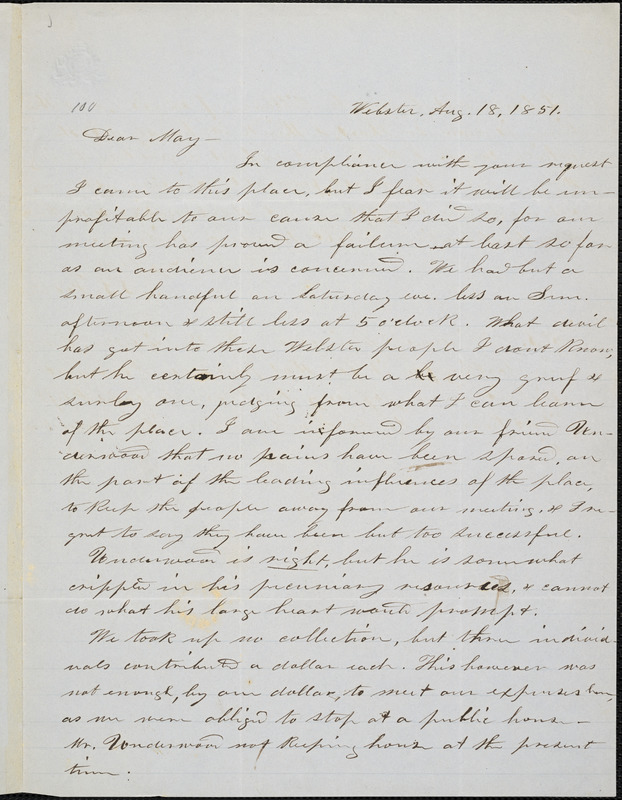 100
Webster, Aug. 18, 1851.
Dear May—
In compliance with your request
I came to this place, but I fear it will be un-
profitable to our cause that I did so, for our
meeting has proved a failure, at least so far
as an audience is concerned. We had but a
small handful on Saturday eve. less on Sun.
afternoon & still less at 5 o'clock. What devil
has got into these Webster people I dont know,
but he certainly must be a very gruf &
surley one, judging from what I can learn
of the place. I am informed by our friend Un-
derwood that no pains have been spared, on
the part of the leading influences of the place,
to keep the people away from our meeting, & I re-
gret to say they have been but too successful.
Underwood is right, but he is somewhat
crippled in his pecuniary resources, & cannot
do what his large heart would prompt.
We took up no collection, but three individ-
uals contributed a dollar each. This however was
not enough, by one dollar, to meet our expenses here,
as we were obliged to stop at a public house—
Mr. Underwood not keeping house at the present
time.